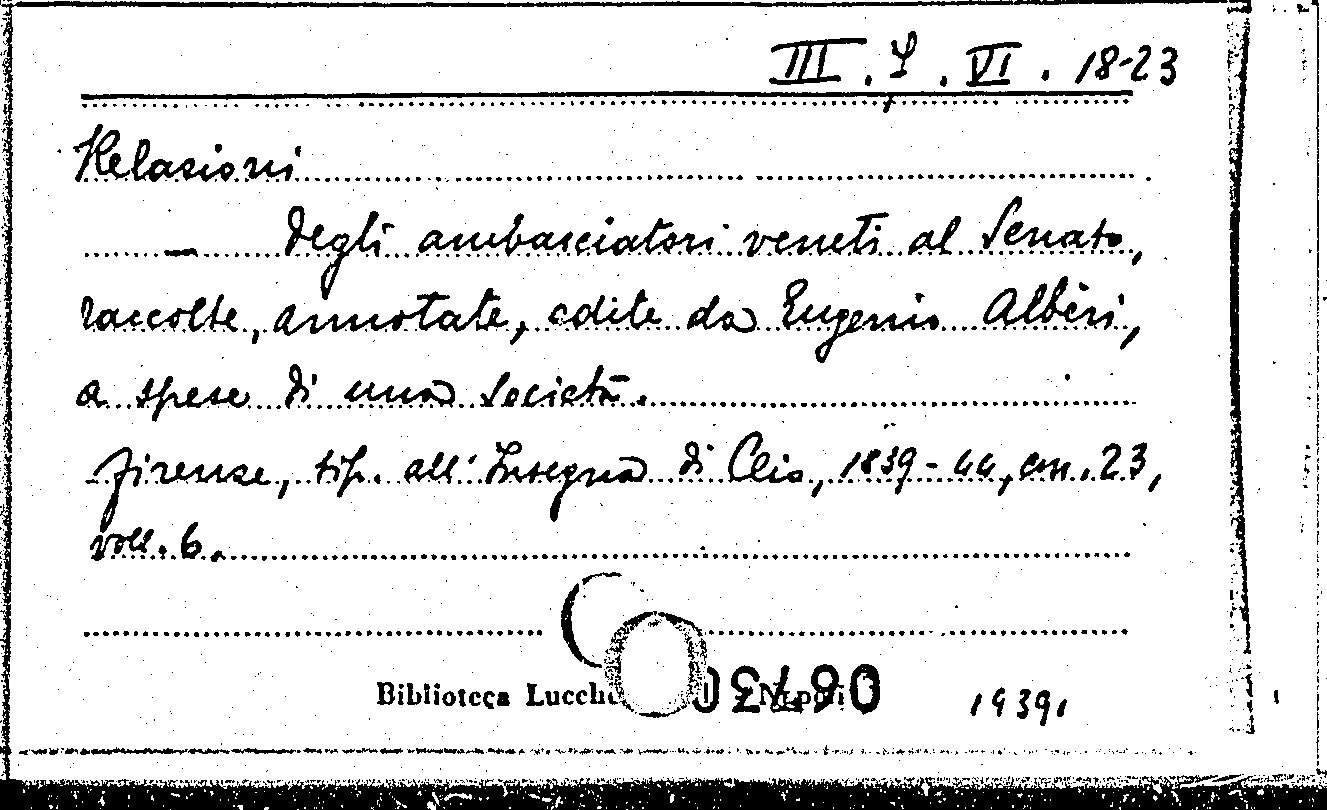 III. Y. VI. 18-23
Relazioni
— degli ambasciatori veneti al Senato,
raccolte, annotate, edite da Eugenio Albèri,
a spese di una Società.
Firenze, tip. all'Insegna di Clio, 1839-44, cm. 23,
voll. 6.
Biblioteca
1939